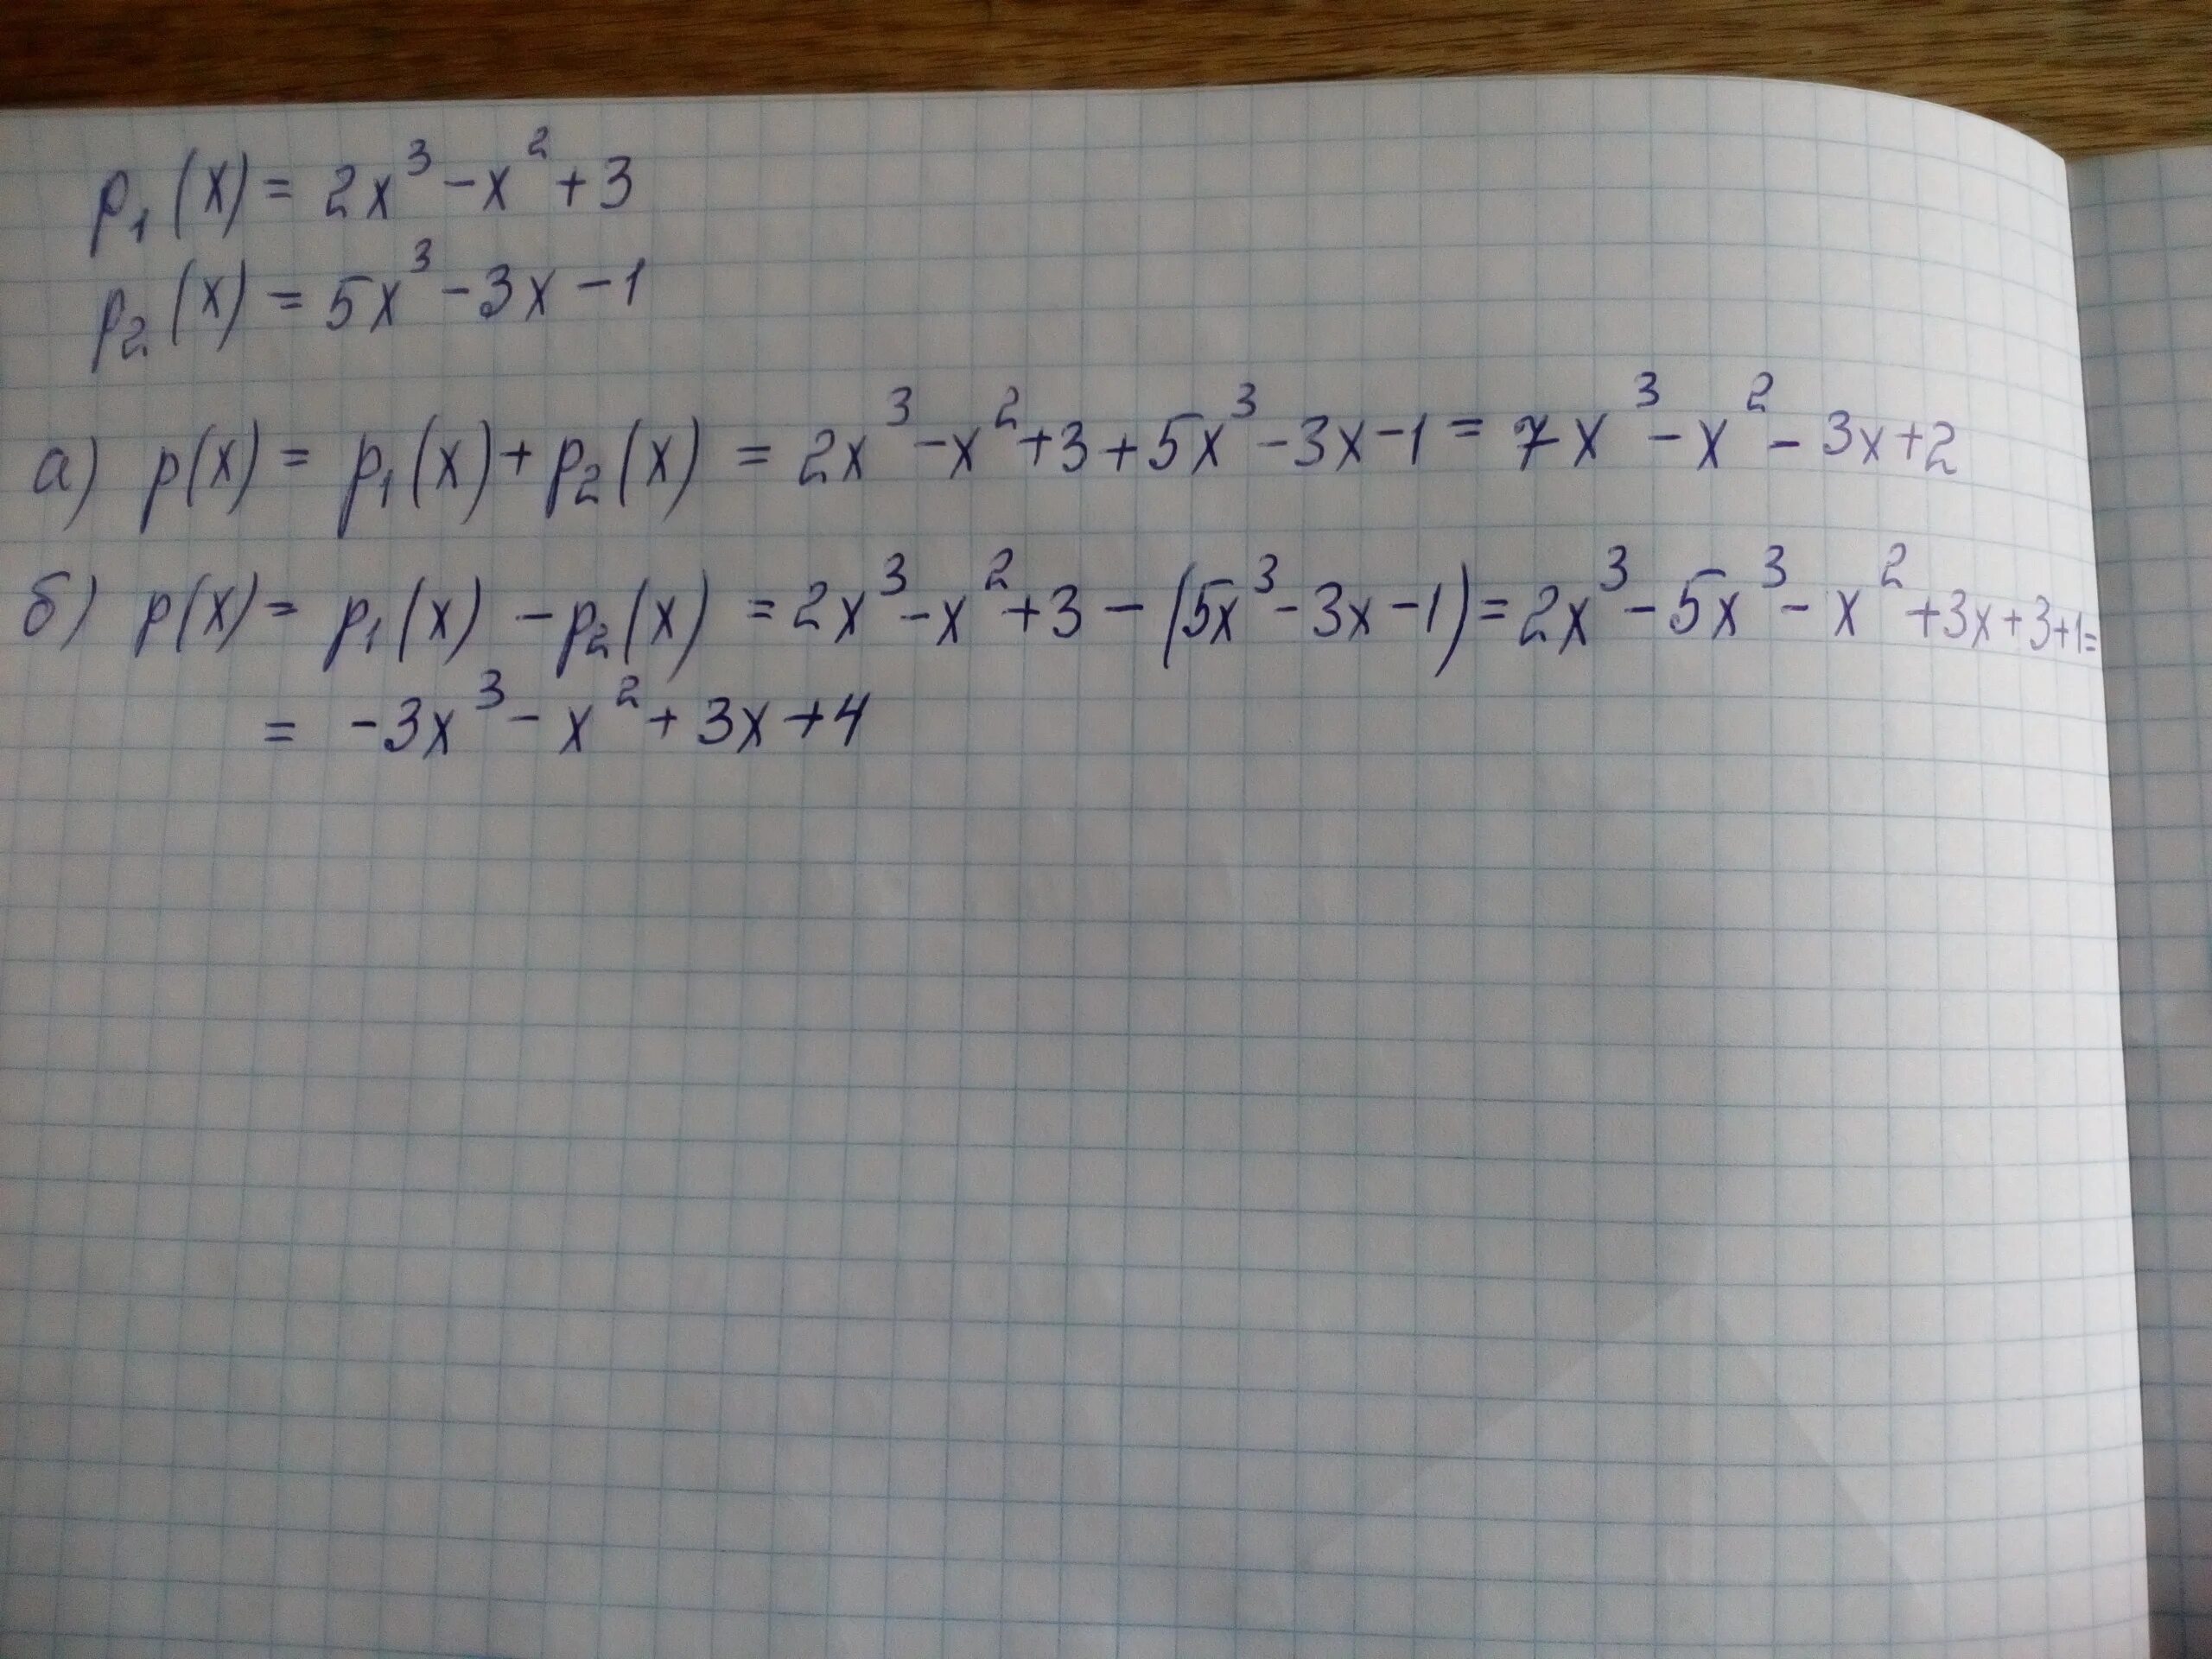 p₁(x) = 2x³ - x² + 3
p₂(x) = 5x³ - 3x - 1
а) p(x) = p₁(x) + p₂(x) = 2x³ - x² + 3 + 5x³ - 3x - 1 = 7x³ - x² - 3x + 2
б) p(x) = p₁(x) - p₂(x) = 2x³ - x² + 3 - (5x³ - 3x - 1) = 2x³ - 5x³ - x² + 3x + 3 + 1 =
= -3x³ - x² + 3x + 4